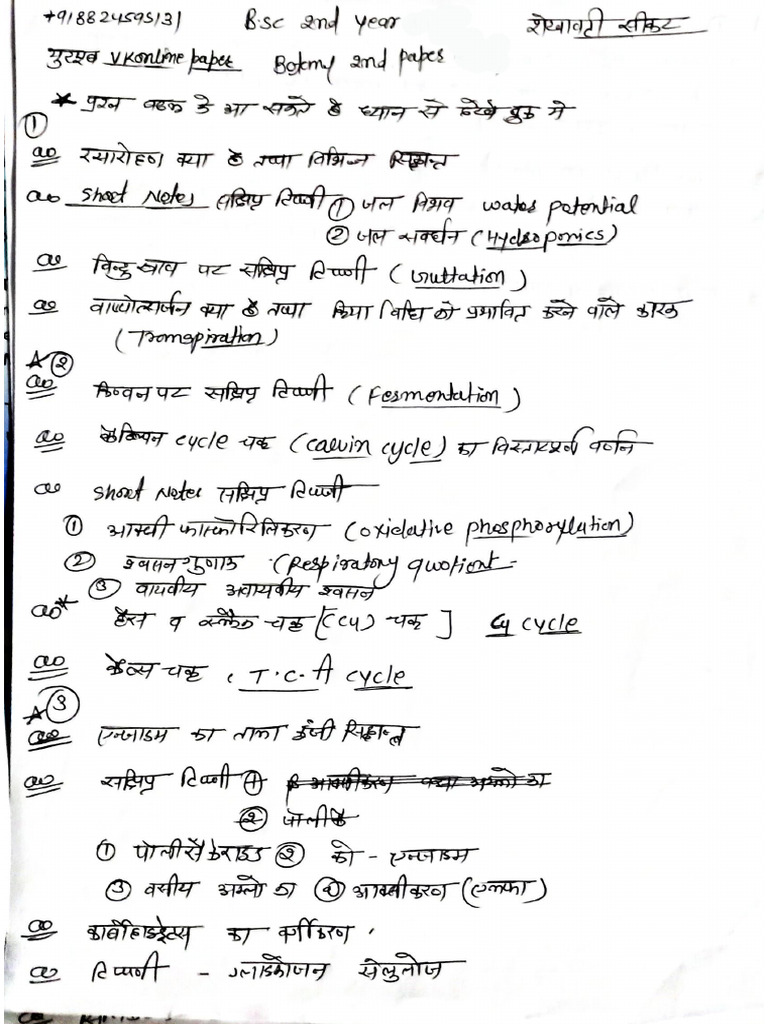 +918824595131 B.sc 2nd year शेखावटी सीकर
VKonlinepaper Botany 2nd paper
* प्रश्न बदल के आ सकते है ध्यान से देखे बुक मे
①
रसारोहण क्या है तथा विभिन्न सिद्धान्त
Short Notes संक्षिप्त टिप्पणी ① जल विभव water potential
② जल संवर्धन (Hydroponics)
बिन्दु स्त्राव पर संक्षिप्त टिप्पणी (Guttation)
वाष्पोत्सर्जन क्या है तथा क्रिया विधि को प्रभावित करने वाले कारक
(Transpiration)
②
किण्वन पर संक्षिप्त टिप्पणी (Fermentation)
केल्विन cycle चक्र (calvin cycle) का विस्तारपूर्वक वर्णन
Short Notes संक्षिप्त टिप्पणी
① आक्सी फास्फोरिलिकरण (oxidative phosphorylation)
② श्वसन गुणांक (Respiratory quotient
③ वायवीय अवायवीय श्वसन
हैस व स्लैक चक्र [(C4) चक्र] C4 cycle
क्रेब्स चक्र, T.C.A cycle
③
एन्जाइम का ताला कुंजी सिद्धान्त
संक्षिप्त टिप्पणी
① पोलीसैकेराइड ② को - एन्जाइम
③ वसीय अम्लो का ④ आक्सीकरण (एल्फा)
कार्बोहाइड्रेटस का वर्गीकरण
टिप्पणी - ग्लाइकोजन सेलुलोज